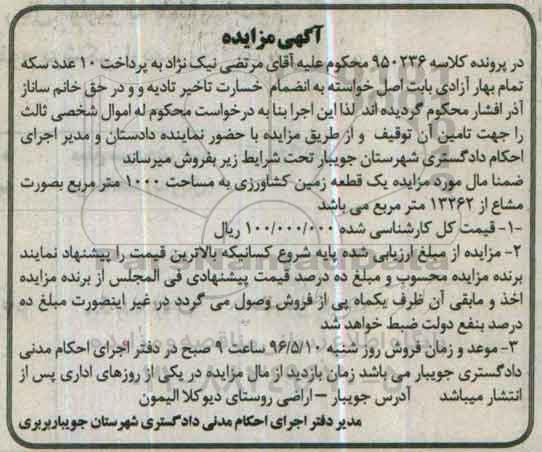 آگهی مزایده
در پرونده کلاسه ۹۵۰۲۳۶ محکوم علیه آقای مرتضی نیک نژاد به پرداخت ۱۰ عدد سکه
تمام بهار آزادی بابت اصل خواسته به انضمام خسارت تاخیر تادیه و و در حق خانم ساناز
آذر افشار محکوم گردیده اند لذا این اجرا بنا به درخواست محکوم له اموال شخصی ثالث
را جهت تامین آن توقیف و از طریق مزایده با حضور نماینده دادستان و مدیر اجرای
احکام دادگستری شهرستان جویبار تحت شرایط زیر بفروش میرساند
ضمنا مال مورد مزایده یک قطعه زمین کشاورزی به مساحت ۱۰۰۰ متر مربع بصورت
مشاع از ۱۳۲۶۲ متر مربع می باشد
-۱- قیمت کل کارشناسی شده ۱۰۰/۰۰۰/۰۰۰ ریال
۲- مزایده از مبلغ ارزیابی شده پایه شروع کسانیکه بالاترین قیمت را پیشنهاد نمایند
برنده مزایده محسوب و مبلغ ده درصد قیمت پیشنهادی فی المجلس از برنده مزایده
اخذ و مابقی آن ظرف یکماه پی از فروش وصول می گردد در غیر اینصورت مبلغ ده
درصد بنفع دولت ضبط خواهد شد
۳- موعد و زمان فروش روز شنبه ۹۶/۵/۱۰ ساعت ۹ صبح در دفتر اجرای احکام مدنی
دادگستری جویبار می باشد زمان بازدید از مال مزایده در یکی از روزهای اداری پس از
انتشار میباشد آدرس جویبار – اراضی روستای دیوکلا الیمون
مدیر دفتر اجرای احکام مدنی دادگستری شهرستان جویباربربری